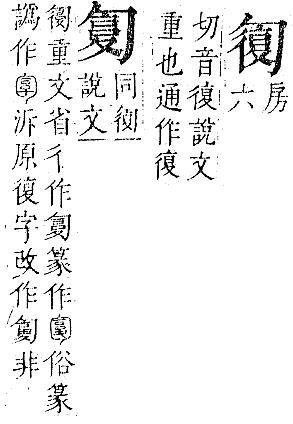 房
六
切音復說文
重也通作復
同
說文
重文省彳作篆作俗篆
譌作泝原復字改作非